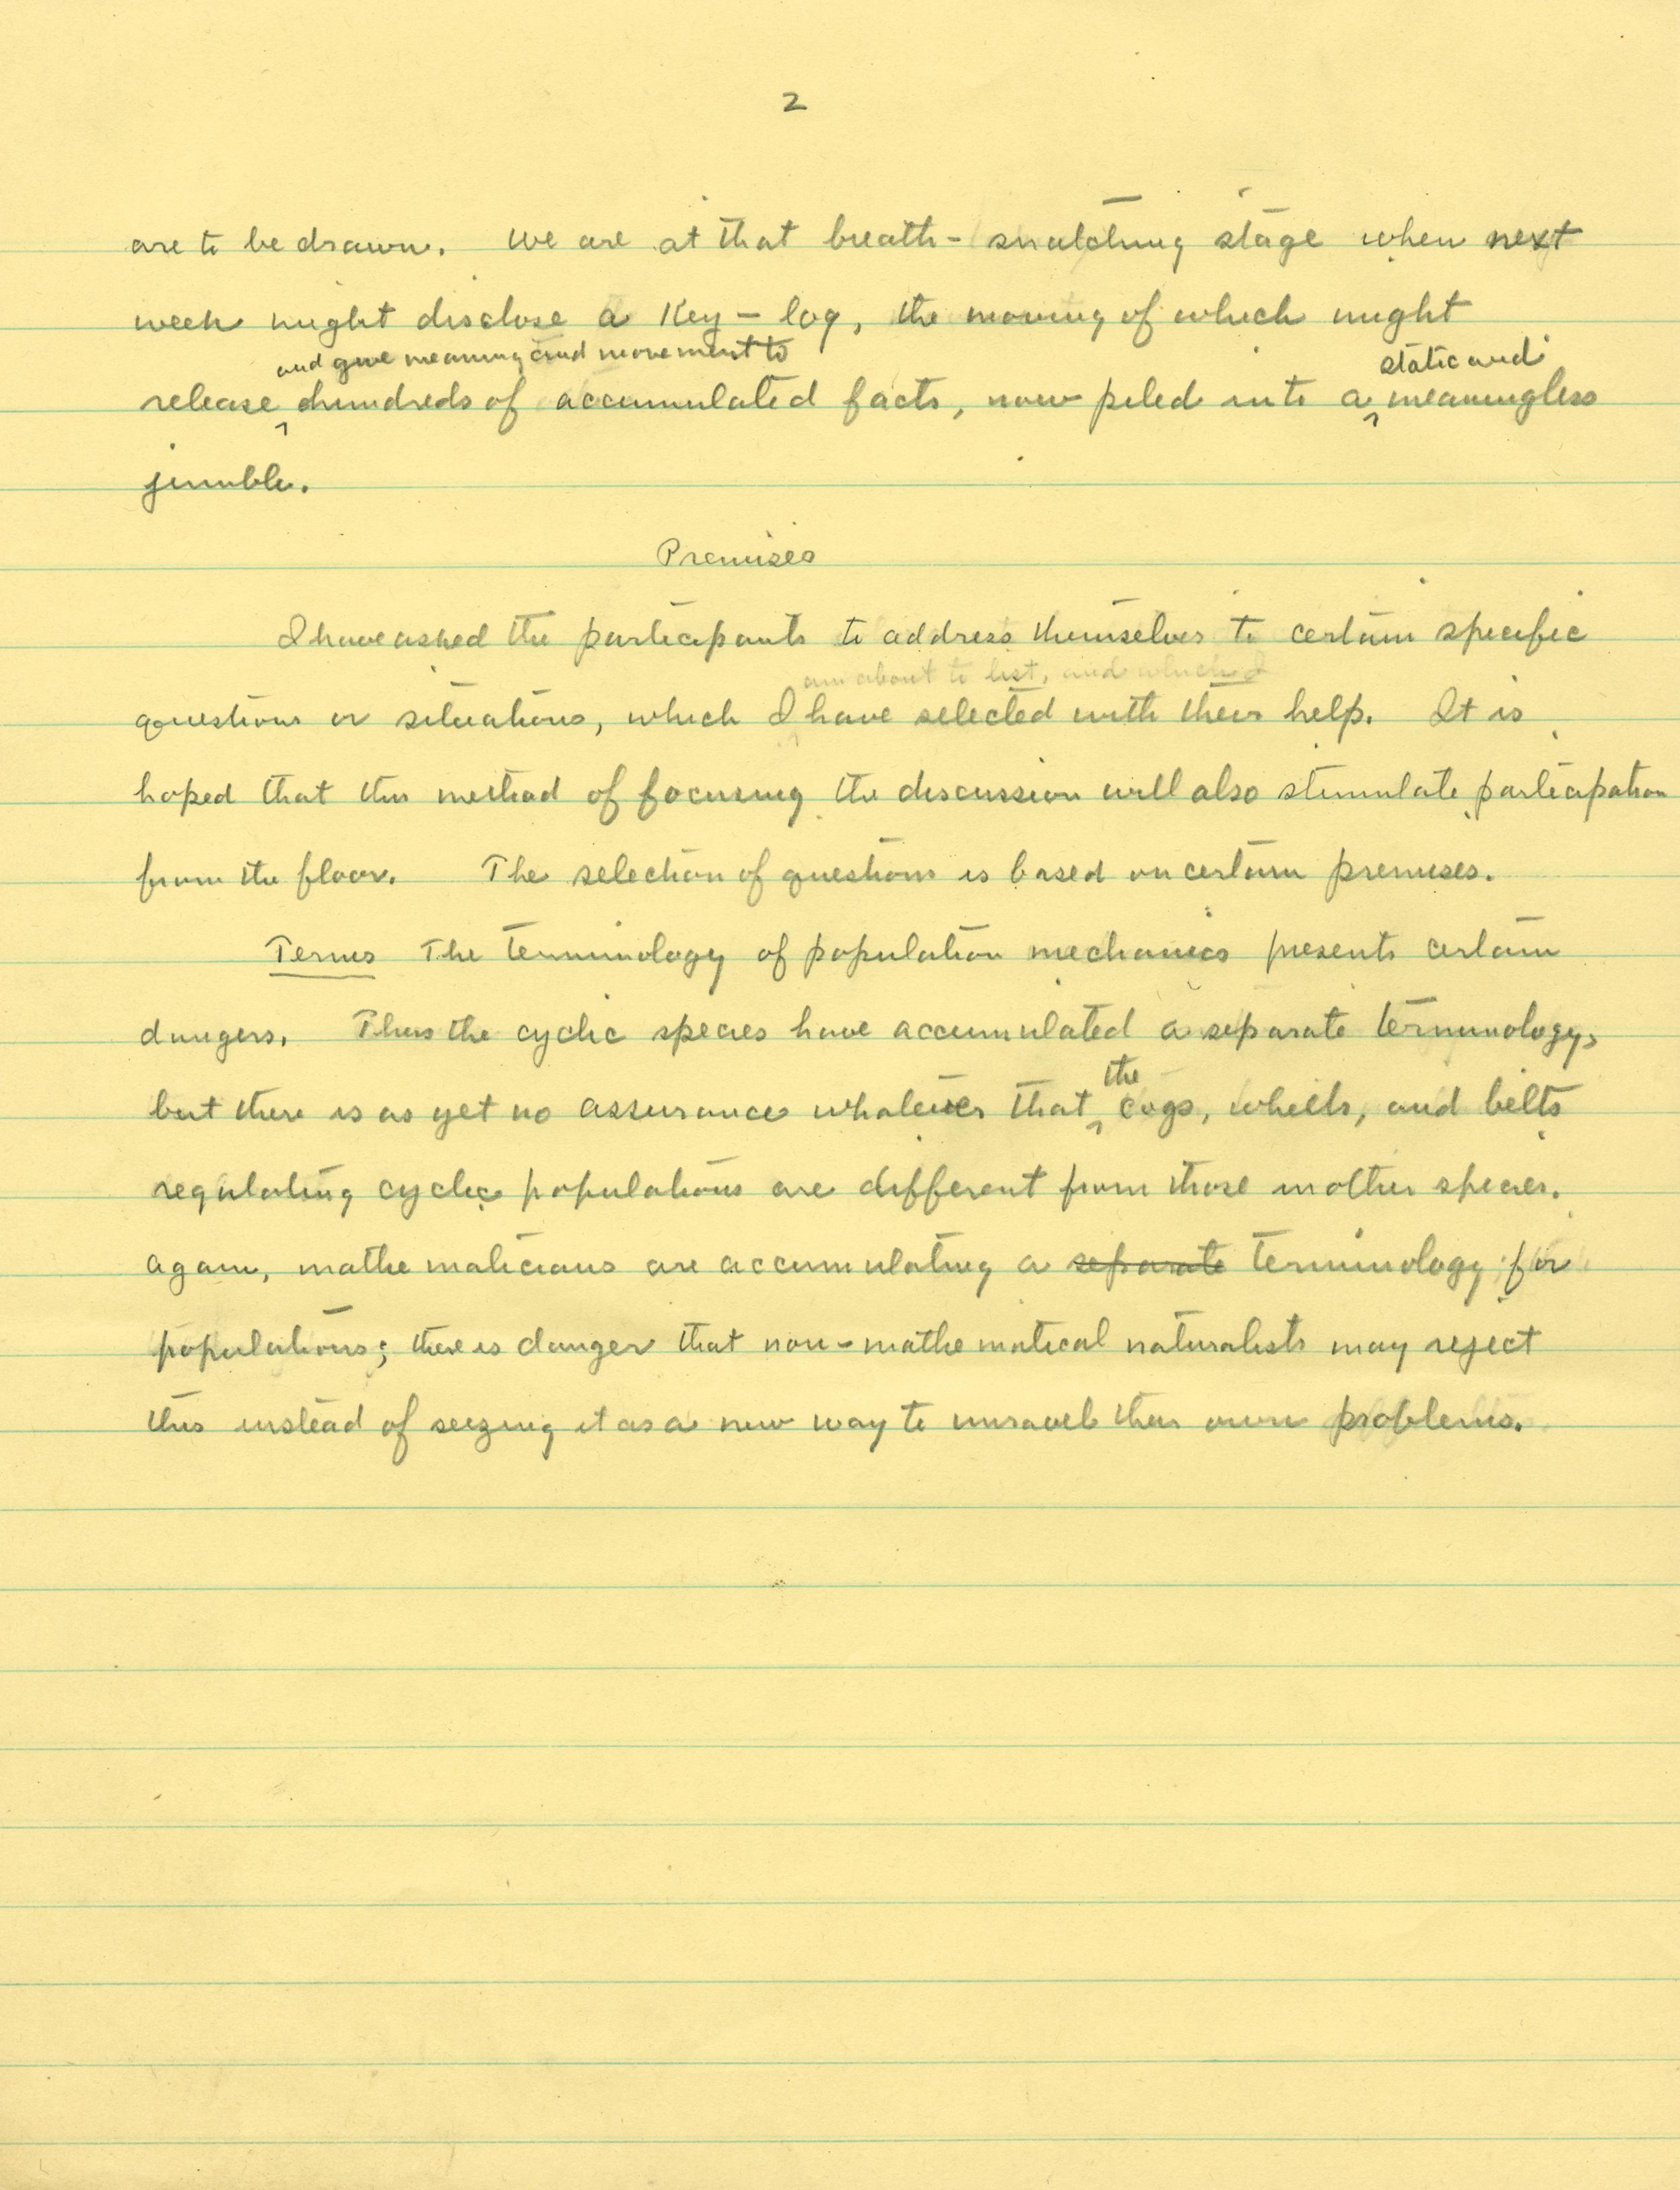 2
are to be drawn. We are at that breath-snatching stage when next
week might disclose a key-log, the moving of which might
and give meaning and movement to static and
release hundreds of accumulated facts, now piled into a meaningless
jumble.
Premises
I have asked the participants to address themselves to certain specific
am about to list, and which I
questions or situations, which I have selected with their help. It is
hoped that this method of focusing the discussion will also stimulate participation
from the floor. The selection of questions is based on certain premises.
Terms The terminology of population mechanics presents certain
dangers. Thus the cyclic species have accumulated a separate terminology,
the
but there is as yet no assurance whatever that cogs, wheels, and belts
regulating cyclic populations are different from those in other species.
Again, mathematicians are accumulating a separate terminology for
populations; there is danger that non-mathematical naturalists may reject
this instead of seizing it as a new way to unravel their own problems.